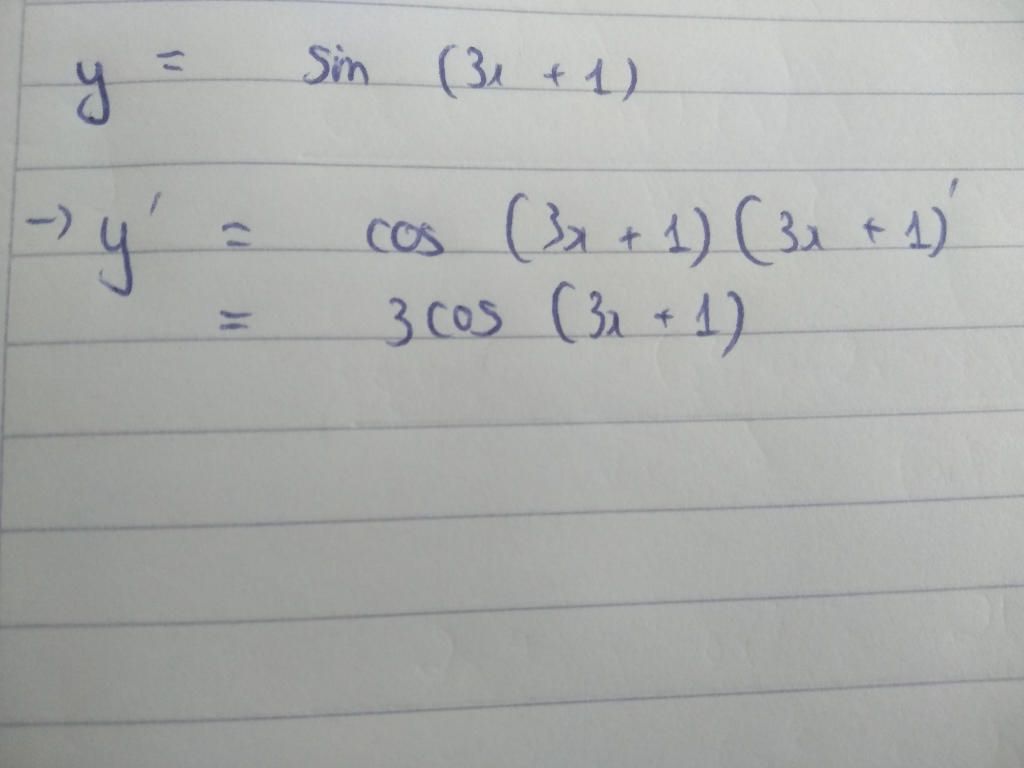 y = sin (3x + 1)
→ y' = cos (3x + 1) (3x + 1)'
= 3cos (3x + 1)